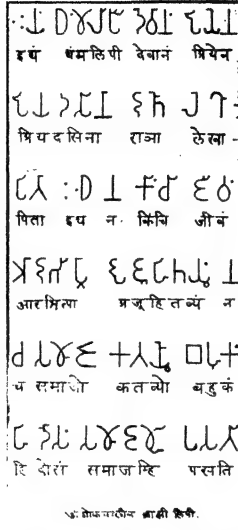 𑀇𑀬𑀁 𑀥𑀁𑀫𑀮𑀺𑀧𑀻 𑀤𑁂𑀯𑀸𑀦𑀁 𑀧𑁆𑀭𑀺𑀬𑁂𑀦
इयं धंमलिपी देवानं प्रियेन
𑀧𑁆𑀭𑀺𑀬𑀤𑀲𑀺𑀦𑀸 𑀭𑀸𑀜𑀸 𑀮𑁂𑀔𑀸
प्रियदसिना राञा लेखा-
𑀧𑀺𑀢𑀸 𑀇𑀥 𑀦 𑀓𑀺𑀁𑀘𑀺 𑀚𑀻𑀯𑀁
पिता इध न किंचि जीवं
𑀆𑀭𑀪𑀺𑀢𑁆𑀧𑀸 𑀧𑁆𑀭𑀚𑀽𑀳𑀺𑀢𑀯𑁆𑀬𑀁 𑀦
आरभित्पा प्रजूहितव्यं न
𑀘 𑀲𑀫𑀸𑀚𑁄 𑀓𑀢𑀯𑁆𑀬𑁄 𑀩𑀳𑀼𑀓𑀁
च समाजो कतव्यो बहुकं
𑀳𑀺 𑀤𑁄𑀲𑀁 𑀲𑀫𑀸𑀚𑀫𑁆𑀳𑀺 𑀧𑀲𑀢𑀺
हि दोसं समाजम्हि पसति
अशोककालीन ब्राह्मी लिपी.